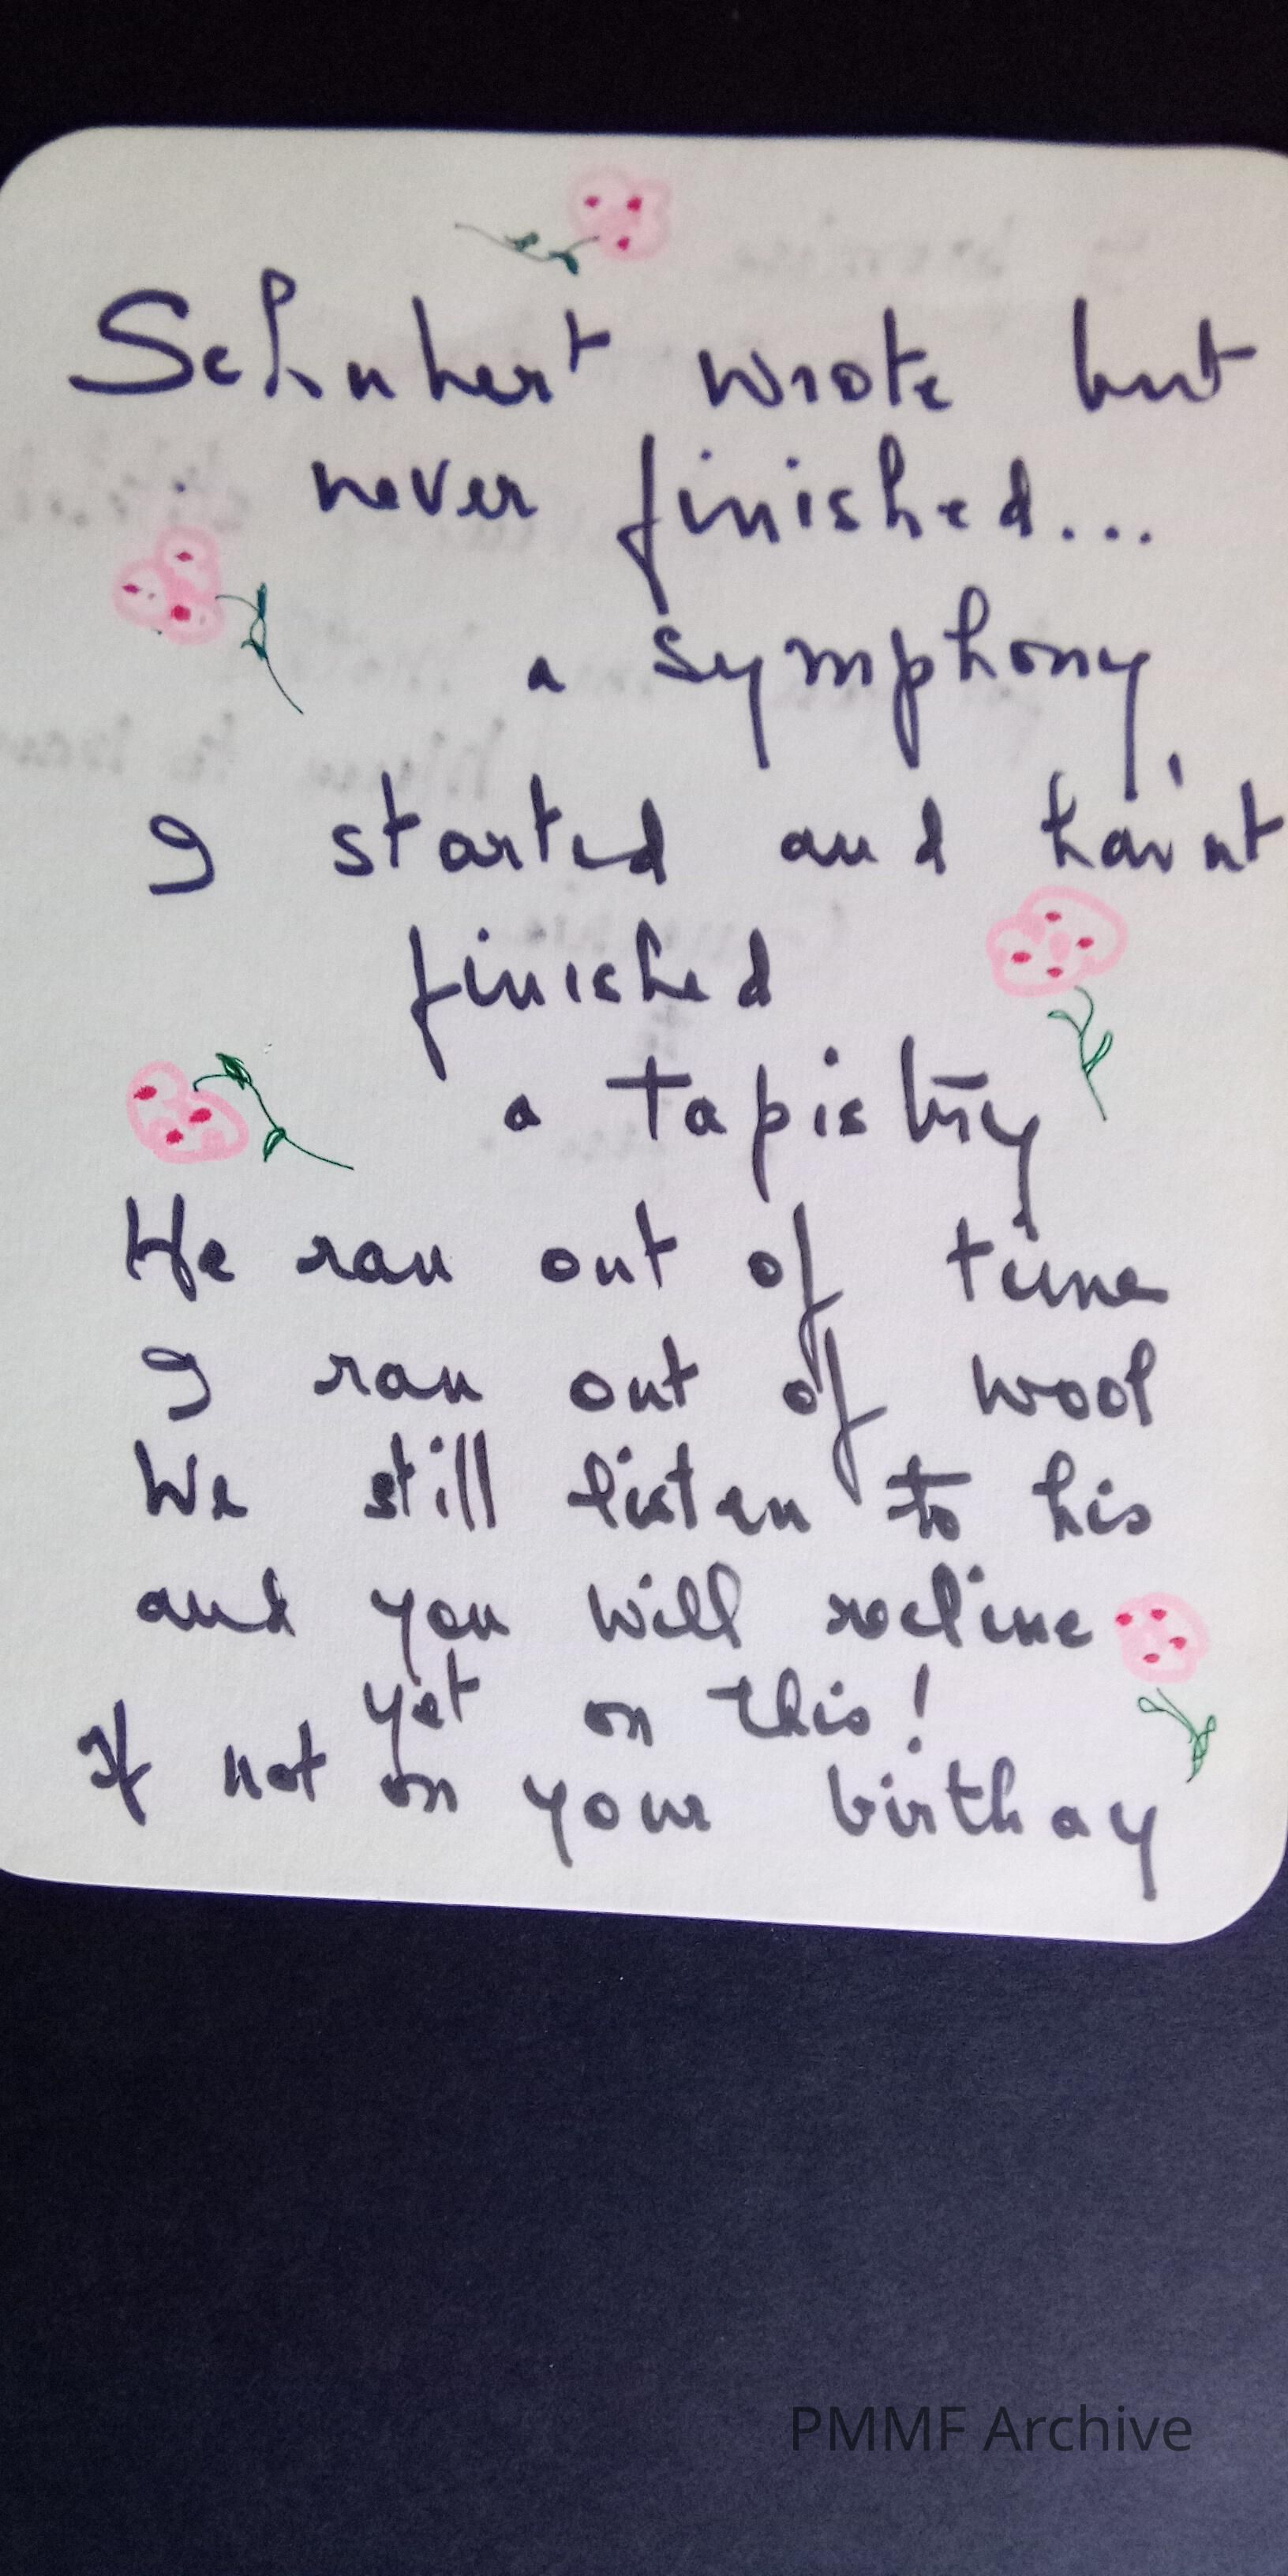 Schubert wrote but
never finished...
a symphony
I started and hav'nt
finished
a tapistry
He ran out of time
I ran out of wool
We still listen to his
and you will recline
yet on this!
If not on your birthay
PMMF Archive